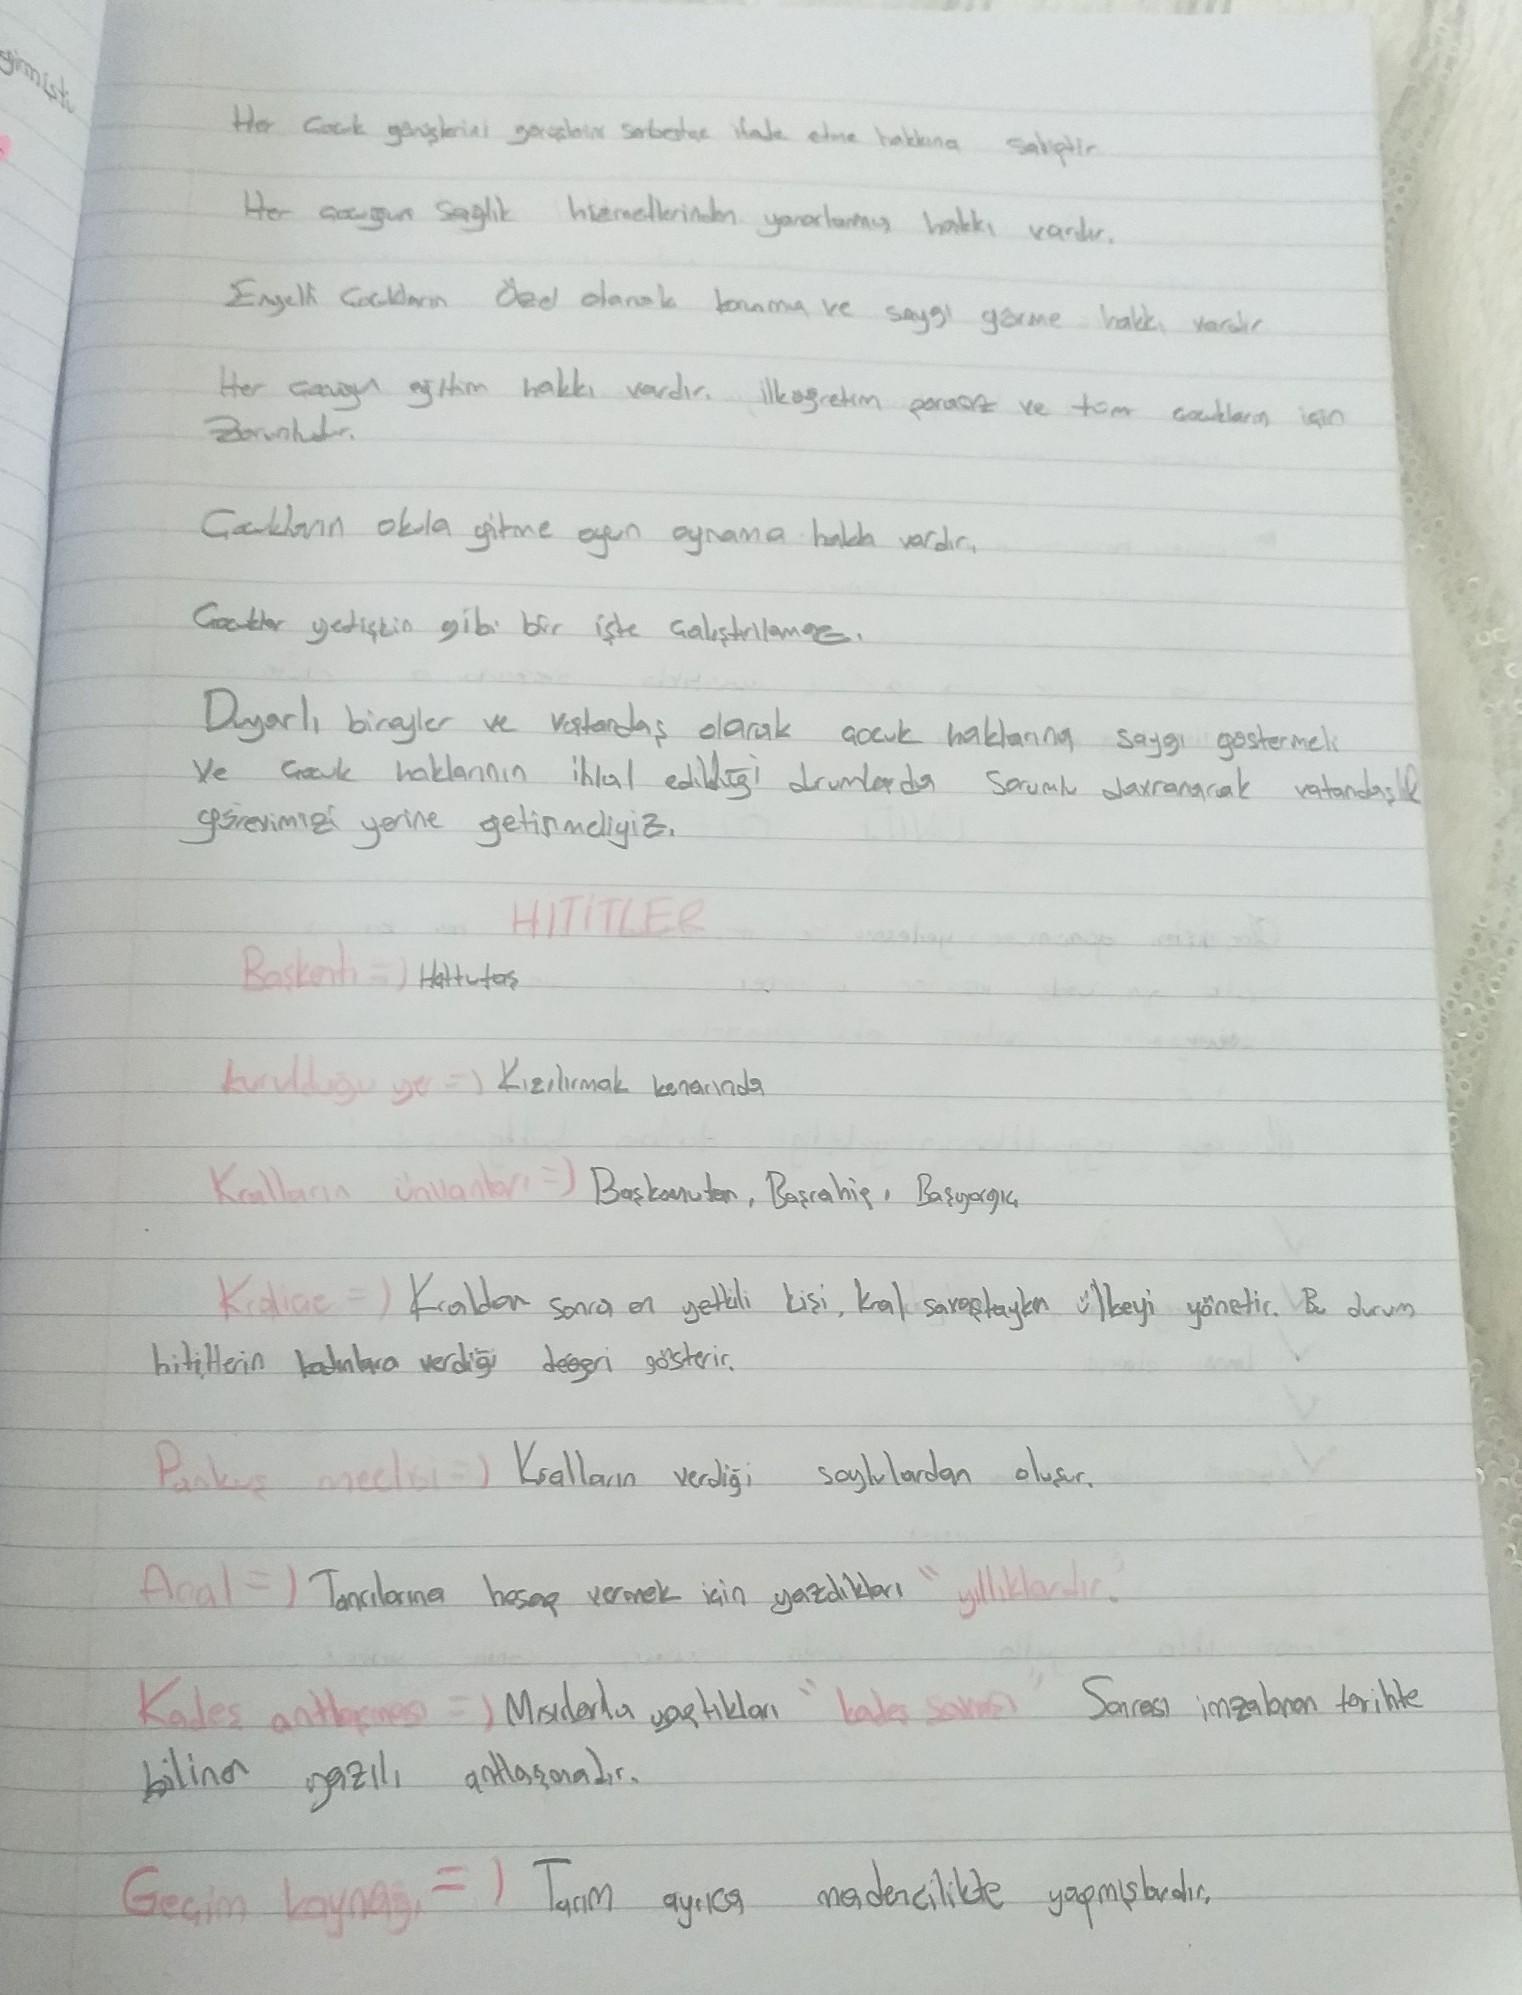 girmişti
Her Çocuk görüşlerini görüşlerini serbestçe ifade etme hakkına sahiptir
Her çocuğun sağlık hizmetlerinden yararlanma hakkı vardır.
Engelli Çocukların Özel olarak korunma ve saygı görme hakkı vardır
Her çocuğun eğitim hakkı vardır. ilköğretim parasız ve tüm çocukların için
Zorunludur.
Çocukların okula gitme oyun oynama hakkı vardır.
Çocuklar yetişkin gibi bir işte çalıştırılamaz.
Duyarlı bireyler ve vatandaş olarak çocuk haklarına saygı göstermeli
ve Çocuk haklarının ihlal edildiği durumlarda sorumlu davranarak vatandaşlık
görevimizi yerine getirmeliyiz.
HİTİTLER
Başkenti =) Hattutaş
kurulduğu yer =) Kızılırmak kenarında
Kralların ünvanları =) Başkomutan, Başrahip, Başyargıç
Kraliçe =) Kraldan sonra en yetkili kişi, kral savaştayken ülkeyi yönetir. Bu durum
hititlerin kadınlara verdiği değeri gösterir.
Pankuş meclisi =) Kralların verdiği soylulardan oluşur.
Anal =) Tanrılarına hesap vermek için yazdıkları "yıllıklardır."
Kadeş antlaşması =) Mısırlarla yaptıkları "kadeş savaşı" Sonrası imzalanan tarihte
bilinen yazılı antlaşmadır.
Geçim kaynağı =) Tarım ayrıca madencilikte yapmışlardır.